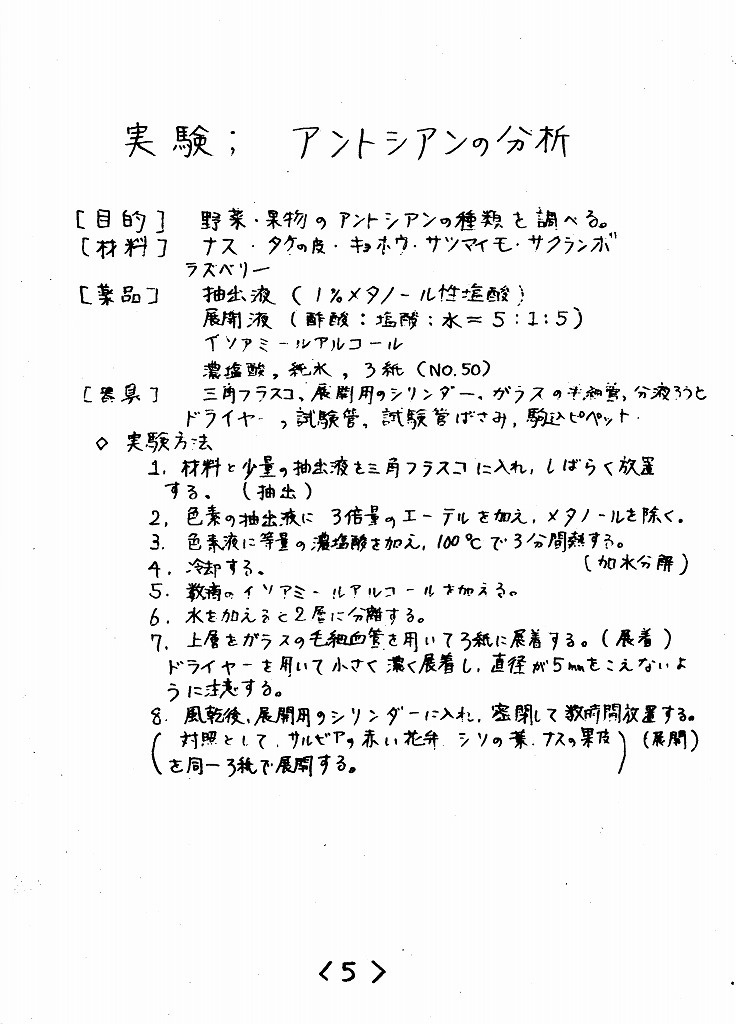 実験； アントシアンの分析
[目的] 野菜・果物のアントシアンの種類を調べる。
[材料] ナス・タケの皮・キョホウ・サツマイモ・サクランボ
ラズベリー
[薬品] 抽出液（1%メタノール性塩酸）
展開液（酢酸：塩酸：水＝5：1：5）
イソアミールアルコール
濃塩酸，純水，ろ紙（NO.50）
[器具] 三角フラスコ、展開用のシリンダー、ガラスの毛細管，分液ろうと
ドライヤー，試験管，試験管ばさみ，駒込ピペット．
◇ 実験方法
1. 材料と少量の抽出液を三角フラスコに入れ，しばらく放置
する。（抽出）
2. 色素の抽出液に3倍量のエーテルを加え，メタノールを除く．
3. 色素液に等量の濃塩酸を加え，100℃で3分間熱する。
4. 冷却する。（加水分解）
5. 数滴のイソアミールアルコールを加える。
6. 水を加えると2層に分離する。
7. 上層をガラスの毛細血管を用いてろ紙に展着する。（展着）
ドライヤーを用いて小さく濃く展着し，直径が5mmをこえないよ
うに注意する。
8. 風乾後，展開用のシリンダーに入れ，密閉して数時間放置する。
（対照として，サルビアの赤い花弁，シソの葉，ナスの果皮（展開）
を同一ろ紙で展開する。）
<5>